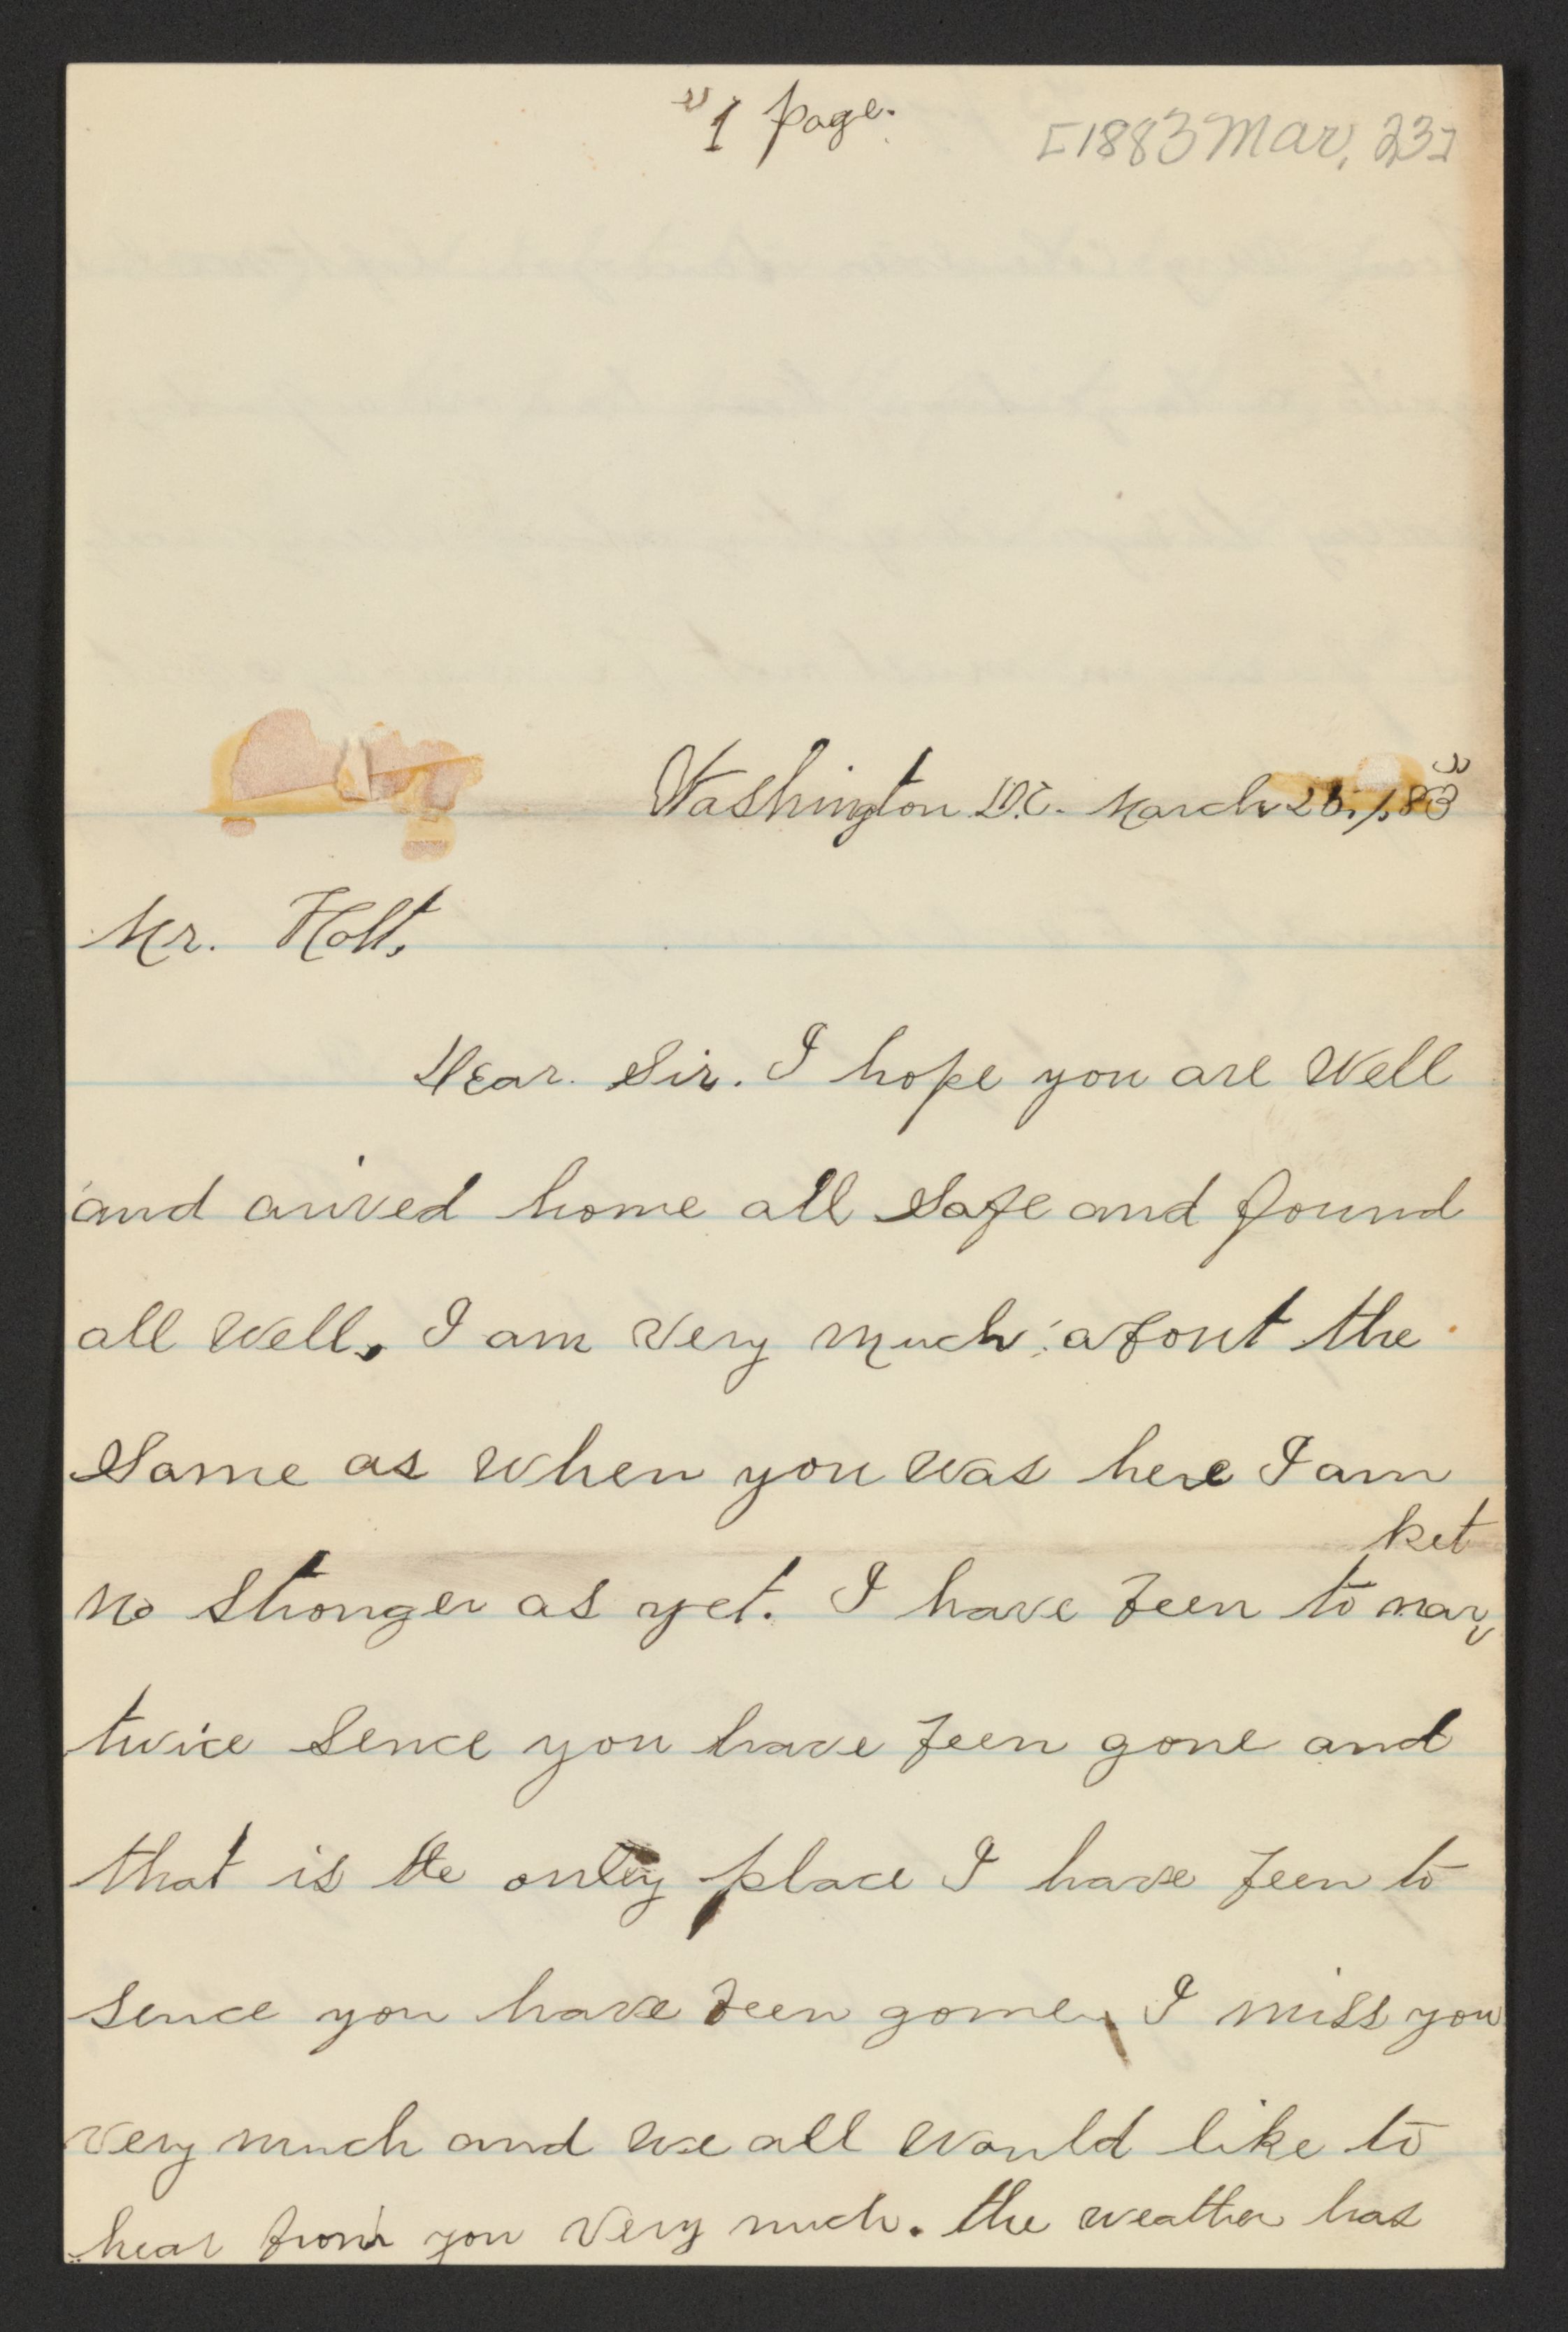 1 page.
[1883 Mar, 23]
Washington D.C. March 23, 1,83
Mr. Holt,
Dear. Sir. I hope you are Well
and arived home all Safe and found
all Well, I am Very much about the
Same as When you Was here I am
ket
no Stronger as yet. I have been to mar
twice Sence you have been gone and
that is the only place I have been to
Sence you have been gome, I miss you
Very much and We all Would like to
hear from you Very much. the weather has